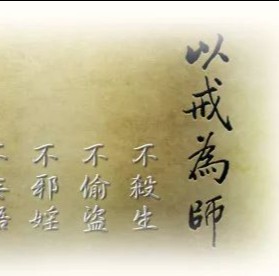 以戒為師
不殺生
不偷盜
不邪婬